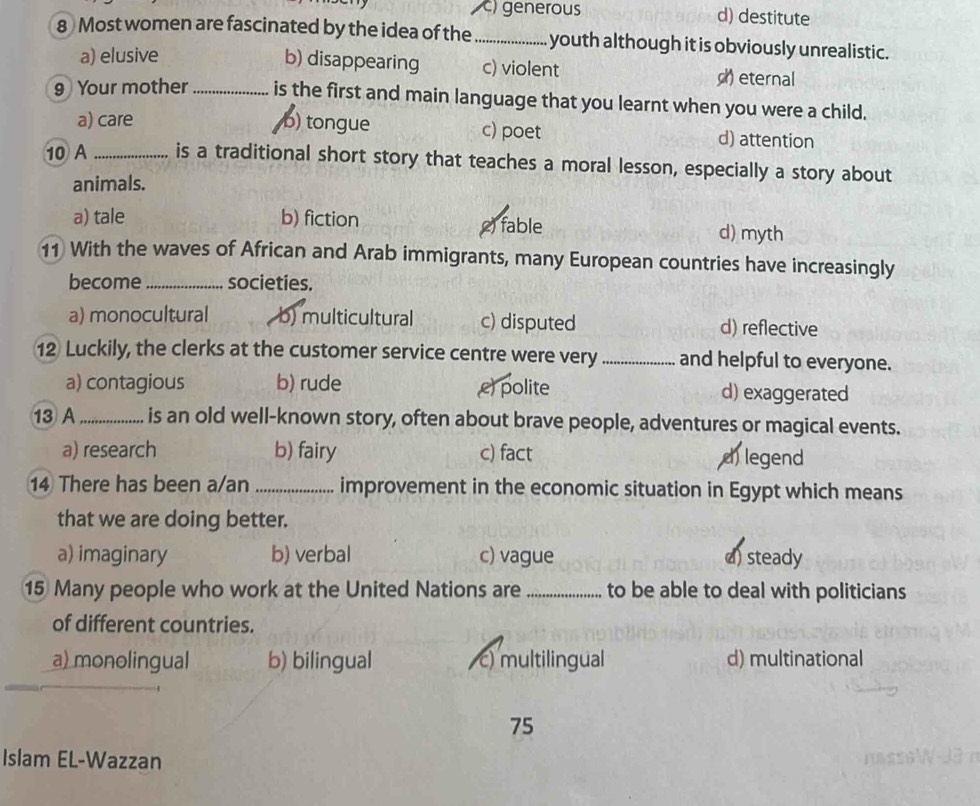 c) generous d) destitute
8 Most women are fascinated by the idea of the .................. youth although it is obviously unrealistic.
a) elusive b) disappearing c) violent d) eternal
9 Your mother .................. is the first and main language that you learnt when you were a child.
a) care b) tongue c) poet d) attention
10 A .................. is a traditional short story that teaches a moral lesson, especially a story about
animals.
a) tale b) fiction c) fable d) myth
11 With the waves of African and Arab immigrants, many European countries have increasingly
become .................. societies.
a) monocultural b) multicultural c) disputed d) reflective
12 Luckily, the clerks at the customer service centre were very .................. and helpful to everyone.
a) contagious b) rude c) polite d) exaggerated
13 A ................ is an old well-known story, often about brave people, adventures or magical events.
a) research b) fairy c) fact d) legend
14 There has been a/an .................. improvement in the economic situation in Egypt which means
that we are doing better.
a) imaginary b) verbal c) vague d) steady
15 Many people who work at the United Nations are .................. to be able to deal with politicians
of different countries.
a) monolingual b) bilingual c) multilingual d) multinational
75
Islam EL-Wazzan